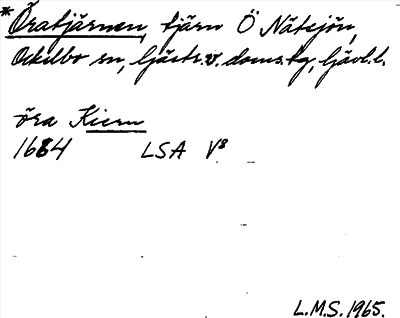 *Öratjärnen, tjärn Ö Nätsjön,
Ockelbo sn, Gästr. v. doms.tg, Gävl.l.
öra Kiern
1684 LSA V8
L.M.S. 1965.